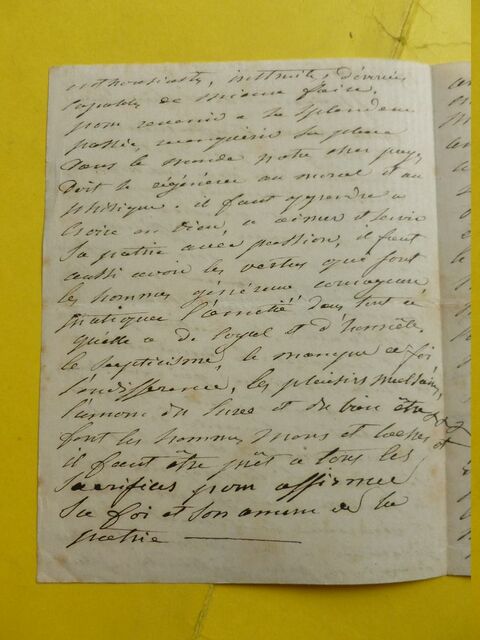 enthousiastes, instruits, dévoués
capables de mieux faire.
pour revenir a sa splendeur
passée, reconquérir sa place
dans le monde notre cher pays
doit se régénérer au moral et au
phisique. il faut apprendre a
croire en Dieu, a aimer et servir
sa patrie avec passion, il faut
aussi avoir les vertus qui font
les hommes généreux
pratiquer l'amitié dans tout ce
qu'elle a de loyal et d'honnête.
le scepticisme, le manque de foi
l'indifférence, les plaisirs malsains,
l'amour du luxe et du bien être
font les hommes mous et laches et
il faut être prêt à tous les
sacrifices pour affirmer
sa foi et son amour de la
patrie